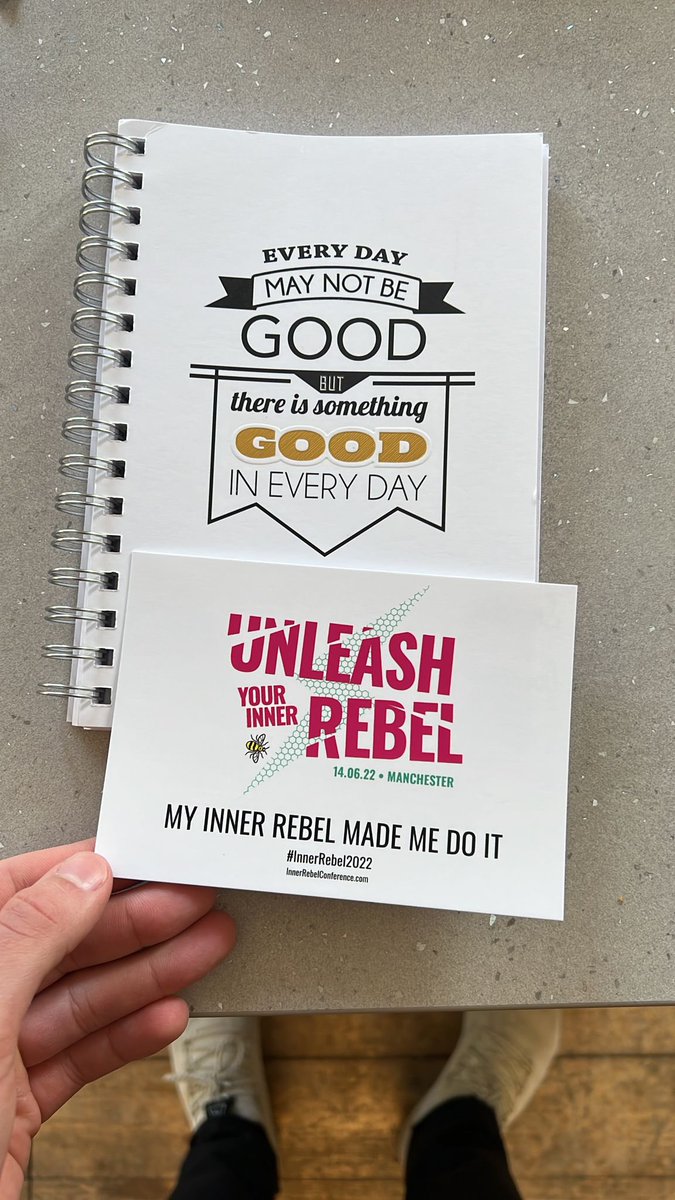 EVERY DAY
MAY NOT BE
GOOD
BUT
there is something
GOOD
IN EVERY DAY
UNLEASH
YOUR
INNER
REBEL
14.06.22 • MANCHESTER
MY INNER REBEL MADE ME DO IT
#InnerRebel2022
InnerRebelConference.com